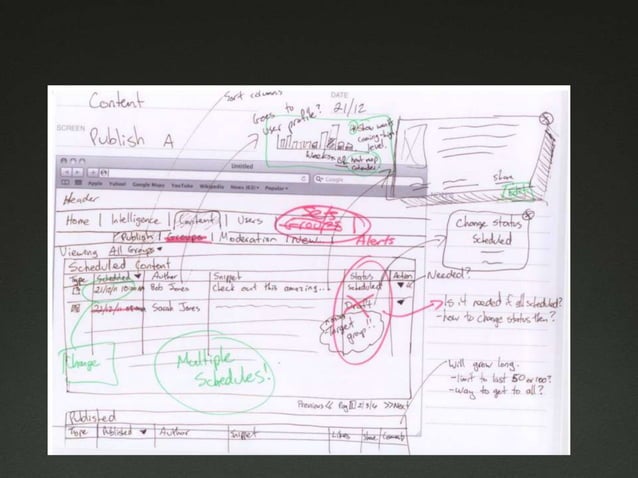 Content
Sort columns
DATE
21/12
SCREEN
Publish A
Goes to
user profile?
show weeks
coming - high
level.
Weeks
OR heat map
calendar
Share
Edit
Untitled
Google
Apple Yahoo! Google Maps YouTube Wikipedia News (62) Popular
Header
Home | Intelligence | Content | Users | Groups |
Sets
Alerts
Publish | Groups | Moderation | New
Viewing All Groups
Change status
Scheduled
Scheduled Content
Type Scheduled Author Snippet Status Action
Bob Jones Check out this amazing... Scheduled
Sarah Jones Draft
Needed?
Target
group!!
Is it needed if all scheduled?
- how to change status then?
Change
Multiple
Schedules!
Will grow long.
- limit to last 50 or 100?
- way to get to all?
Previous << Pag 1 2/3/4 >> Next
Published
Type Published Author Snippet Likes Share Comments